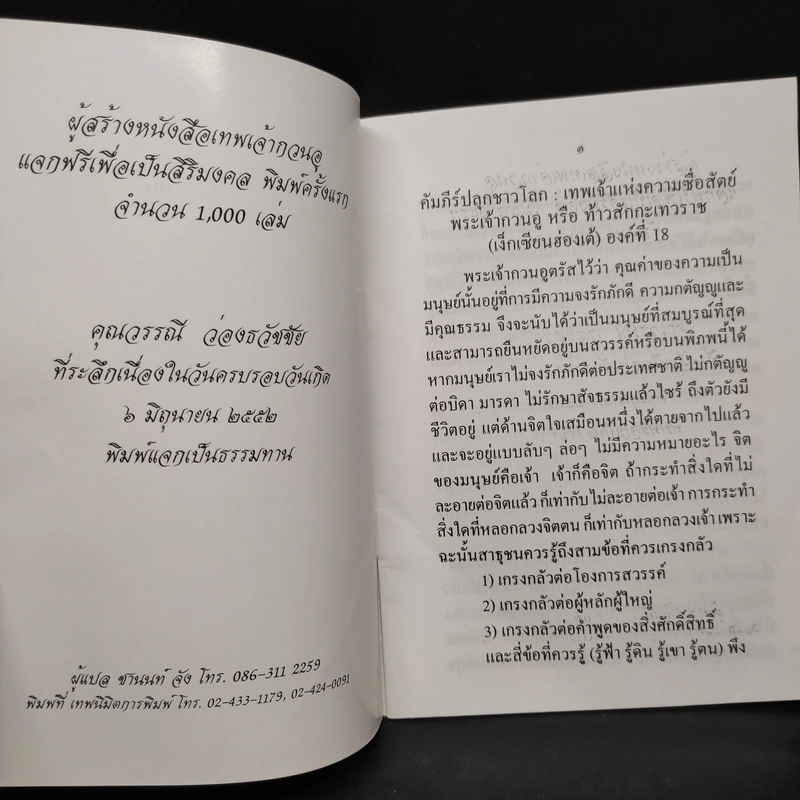 ผู้สร้างหนังสือเทพเจ้ากวนอู
แจกฟรีเพื่อเป็นสิริมงคล พิมพ์ครั้งแรก
จำนวน 1,000 เล่ม
คุณวรรณี ว่องธวัชชัย
ที่ระลึกเนื่องในวันครบรอบวันเกิด
๖ มิถุนายน ๒๕๕๒
พิมพ์แจกเป็นธรรมทาน
ผู้แปล ชานนท์ จัง โทร. 086-311 2259
พิมพ์ที่ เทพนิมิตการพิมพ์ โทร. 02-433-1179, 02-424-0091
๑
คัมภีร์ปลุกชาวโลก : เทพเจ้าแห่งความซื่อสัตย์
พระเจ้ากวนอู หรือ ท้าวสักกะเทวราช
(เง็กเซียนฮ่องเต้) องค์ที่ 18
พระเจ้ากวนอูตรัสไว้ว่า คุณค่าของความเป็น
มนุษย์นั้นอยู่ที่การมีความจงรักภักดี ความกตัญญูและ
มีคุณธรรม จึงจะนับได้ว่าเป็นมนุษย์ที่สมบูรณ์ที่สุด
และสามารถยืนหยัดอยู่บนสวรรค์หรือบนพิภพนี้ได้
หากมนุษย์เราไม่จงรักภักดีต่อประเทศชาติ ไม่กตัญญู
ต่อบิดา มารดา ไม่รักษาสัจธรรมแล้วไซร้ ถึงตัวยังมี
ชีวิตอยู่ แต่ด้านจิตใจเสมือนหนึ่งได้ตายจากไปแล้ว
และจะอยู่แบบลับๆ ล่อๆ ไม่มีความหมายอะไร จิต
ของมนุษย์คือเจ้า เจ้าก็คือจิต ถ้ากระทำสิ่งใดที่ไม่
ละอายต่อจิตแล้ว ก็เท่ากับไม่ละอายต่อเจ้า การกระทำ
สิ่งใดที่หลอกลวงจิตตน ก็เท่ากับหลอกลวงเจ้า เพราะ
ฉะนั้นสาธุชนควรรู้ถึงสามข้อที่ควรเกรงกลัว
1) เกรงกลัวต่อโองการสวรรค์
2) เกรงกลัวต่อผู้หลักผู้ใหญ่
3) เกรงกลัวต่อคำพูดของสิ่งศักดิ์สิทธิ์
และสี่ข้อที่ควรรู้ (รู้ฟ้า รู้ดิน รู้เขา รู้ตน) พึง